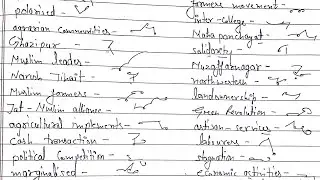 polarised -
agrarian communities -
Ghazipur -
Muslim leader -
Naresh Tikait -
Muslim farmers -
Jat-Muslim alliance -
agricultural implements -
cash transaction -
political competition -
marginalised -
farmers movement -
Inter-College -
Mahapanchayat -
solidarity -
Muzaffarnagar -
northwestern -
landownership -
Green Revolution -
artisan-services -
labourers -
stagnation -
economic activities -